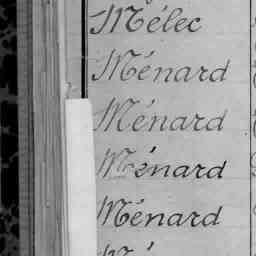 Mélec
Ménard
Ménard
Ménard
Ménard